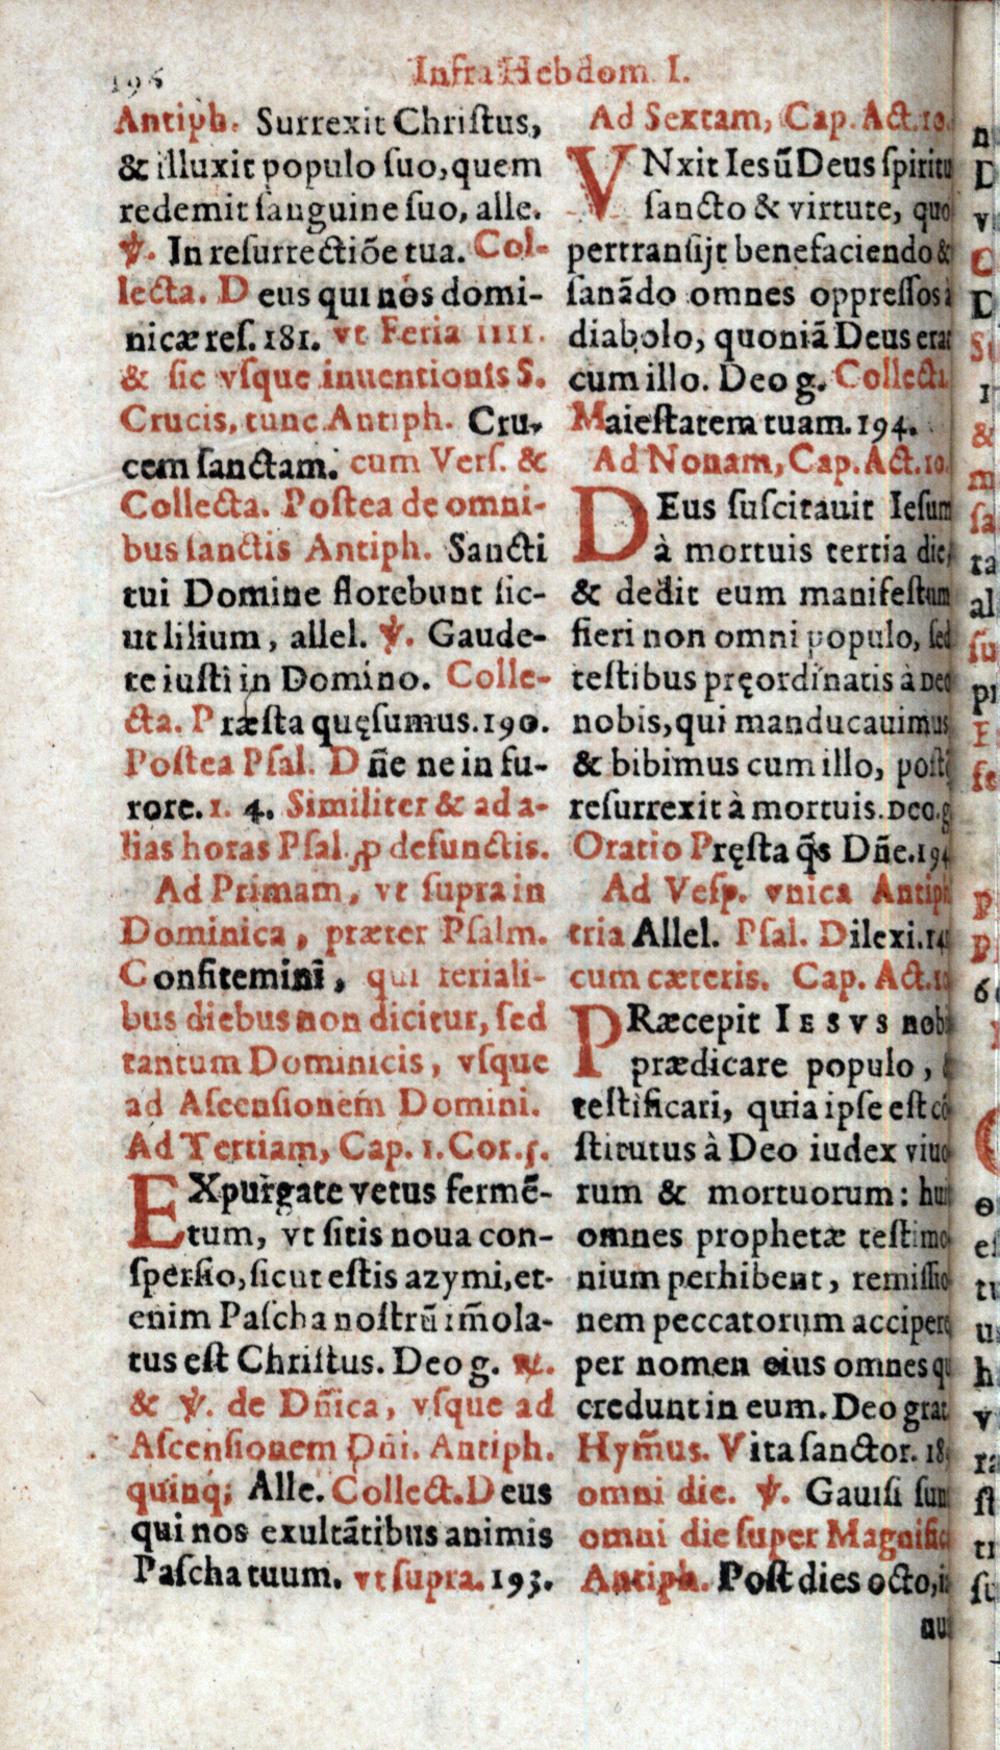 196
Infra Hebdom. I.
Antiph. Surrexit Chriſtus,
& illuxit populo ſuo, quem
redemit ſanguine ſuo, alle.
℣. In reſurrectiõe tua. Col-
lecta. D eus qui nos domi-
nicæ reſ. 181. vt Feria IIII.
& ſic vſque inuentionis S.
Crucis, tunc Antiph. Cru-
cem ſanctam. cum Verſ. &
Collecta. Poſtea de omni-
bus ſanctis Antiph. Sancti
tui Domine florebunt ſic-
ut lilium, allel. ℣. Gaude-
te iuſti in Domino. Colle-
cta. P ræſta quęſumus. 190.
Poſtea Pſal. D ñe ne in fu-
rore. 1. 4. Similiter & ad a-
lias horas Pſal. ꝓ defunctis.
Ad Primam, vt ſupra in
Dominica, præter Pſalm.
Confitemini, qui feriali-
bus diebus non dicitur, ſed
tantum Dominicis, vſque
ad Aſcenſionem Domini.
Ad Tertiam, Cap. 1. Cor. 5.
EXpurgate vetus fermẽ-
tum, vt ſitis noua con-
ſperſio, ſicut eſtis azymi, et-
enim Paſcha noſtrũ im̃ola-
tus eſt Chriſtus. Deo g. ℟.
& ℣. de Dñica, vſque ad
Aſcenſionem Dñi. Antiph.
quinq; Alle. Collect. Deus
qui nos exultãtibus animis
Paſcha tuum. vt ſupra. 193.
Ad Sextam, Cap. Act. 10.
VNxit Ieſũ Deus ſpiritu
ſancto & virtute, quo
pertranſijt benefaciendo &
ſanãdo omnes oppreſſos à
diabolo, quoniã Deus erat
cum illo. Deo g. Collecta
Maieſtatem tuam. 194.
Ad Nonam, Cap. Act. 10.
DEus ſuſcitauit Ieſum
à mortuis tertia die,
& dedit eum manifeſtum
fieri non omni populo, ſed
teſtibus pręordinatis à Deo
nobis, qui manducauimus
& bibimus cum illo, poſtq̃
reſurrexit à mortuis. Deo. g
Oratio Pręſta q̃s Dñe. 194
Ad Veſp. vnica Antiph
tria Allel. Pſal. Dilexi.
cum cæteris. Cap. Act. 10
PRæcepit IESVS nobi
prædicare populo, &
teſtificari, quia ipſe eſt cõ
ſtitutus à Deo iudex viuo
rum & mortuorum: huic
omnes prophetæ teſtimo
nium perhibent, remiſſio
nem peccatorum accipere
per nomen eius omnes qui
credunt in eum. Deo grat.
Hym̃us. Vita ſanctor.
omni die. ℣. Gauiſi ſunt
omni die ſuper Magnific
Antiph. Poſt dies octo, i
nu